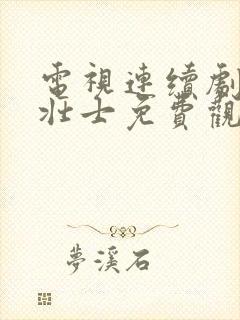 電視連續劇
壯士免費觀
夢溪石